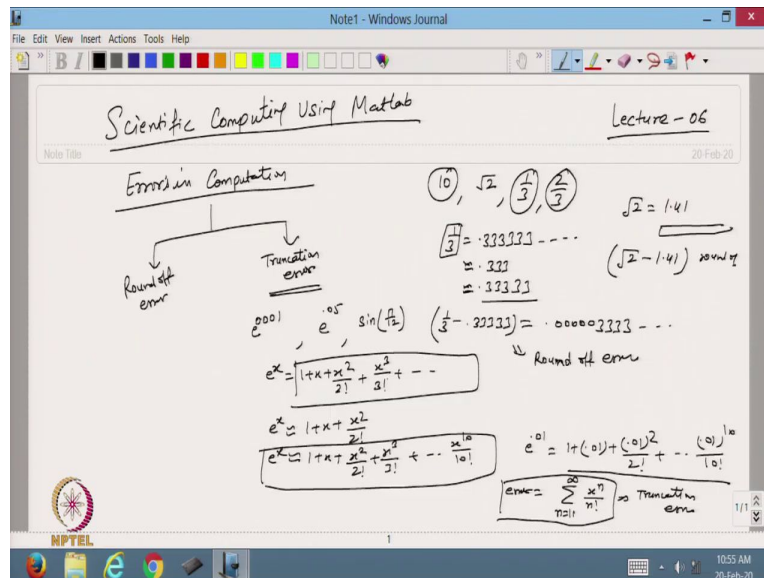 Note1 - Windows Journal
File Edit View Insert Actions Tools Help
B I
Scientific Computing Using Matlab
Lecture - 06
Note Title
20-Feb-20
Errors in Computation
Round off error
Truncation error
10, √2, 1/3, 2/3
√2 = 1.41
1/3 = .333333 - - - -
≈ .333
≈ .33333
(√2 - 1.41) round of
e^.0001, e^.05, sin(π/12)
(1/3 - .33333) = .000003333 - - -
⇓ Round off error
e^x = 1+x+x²/2! + x³/3! + - -
e^x ≈ 1+x+x²/2!
e^x ≈ 1+x+x²/2!+x³/3! + - - x^10/10!
e^.01 = 1+(.01)+(.01)²/2! + - - (.01)^10/10!
error = ∑_{n=11}^{∞} x^n/n! ⇒ Truncation error
NPTEL
1
1/1
10:55 AM
20-Feb-20